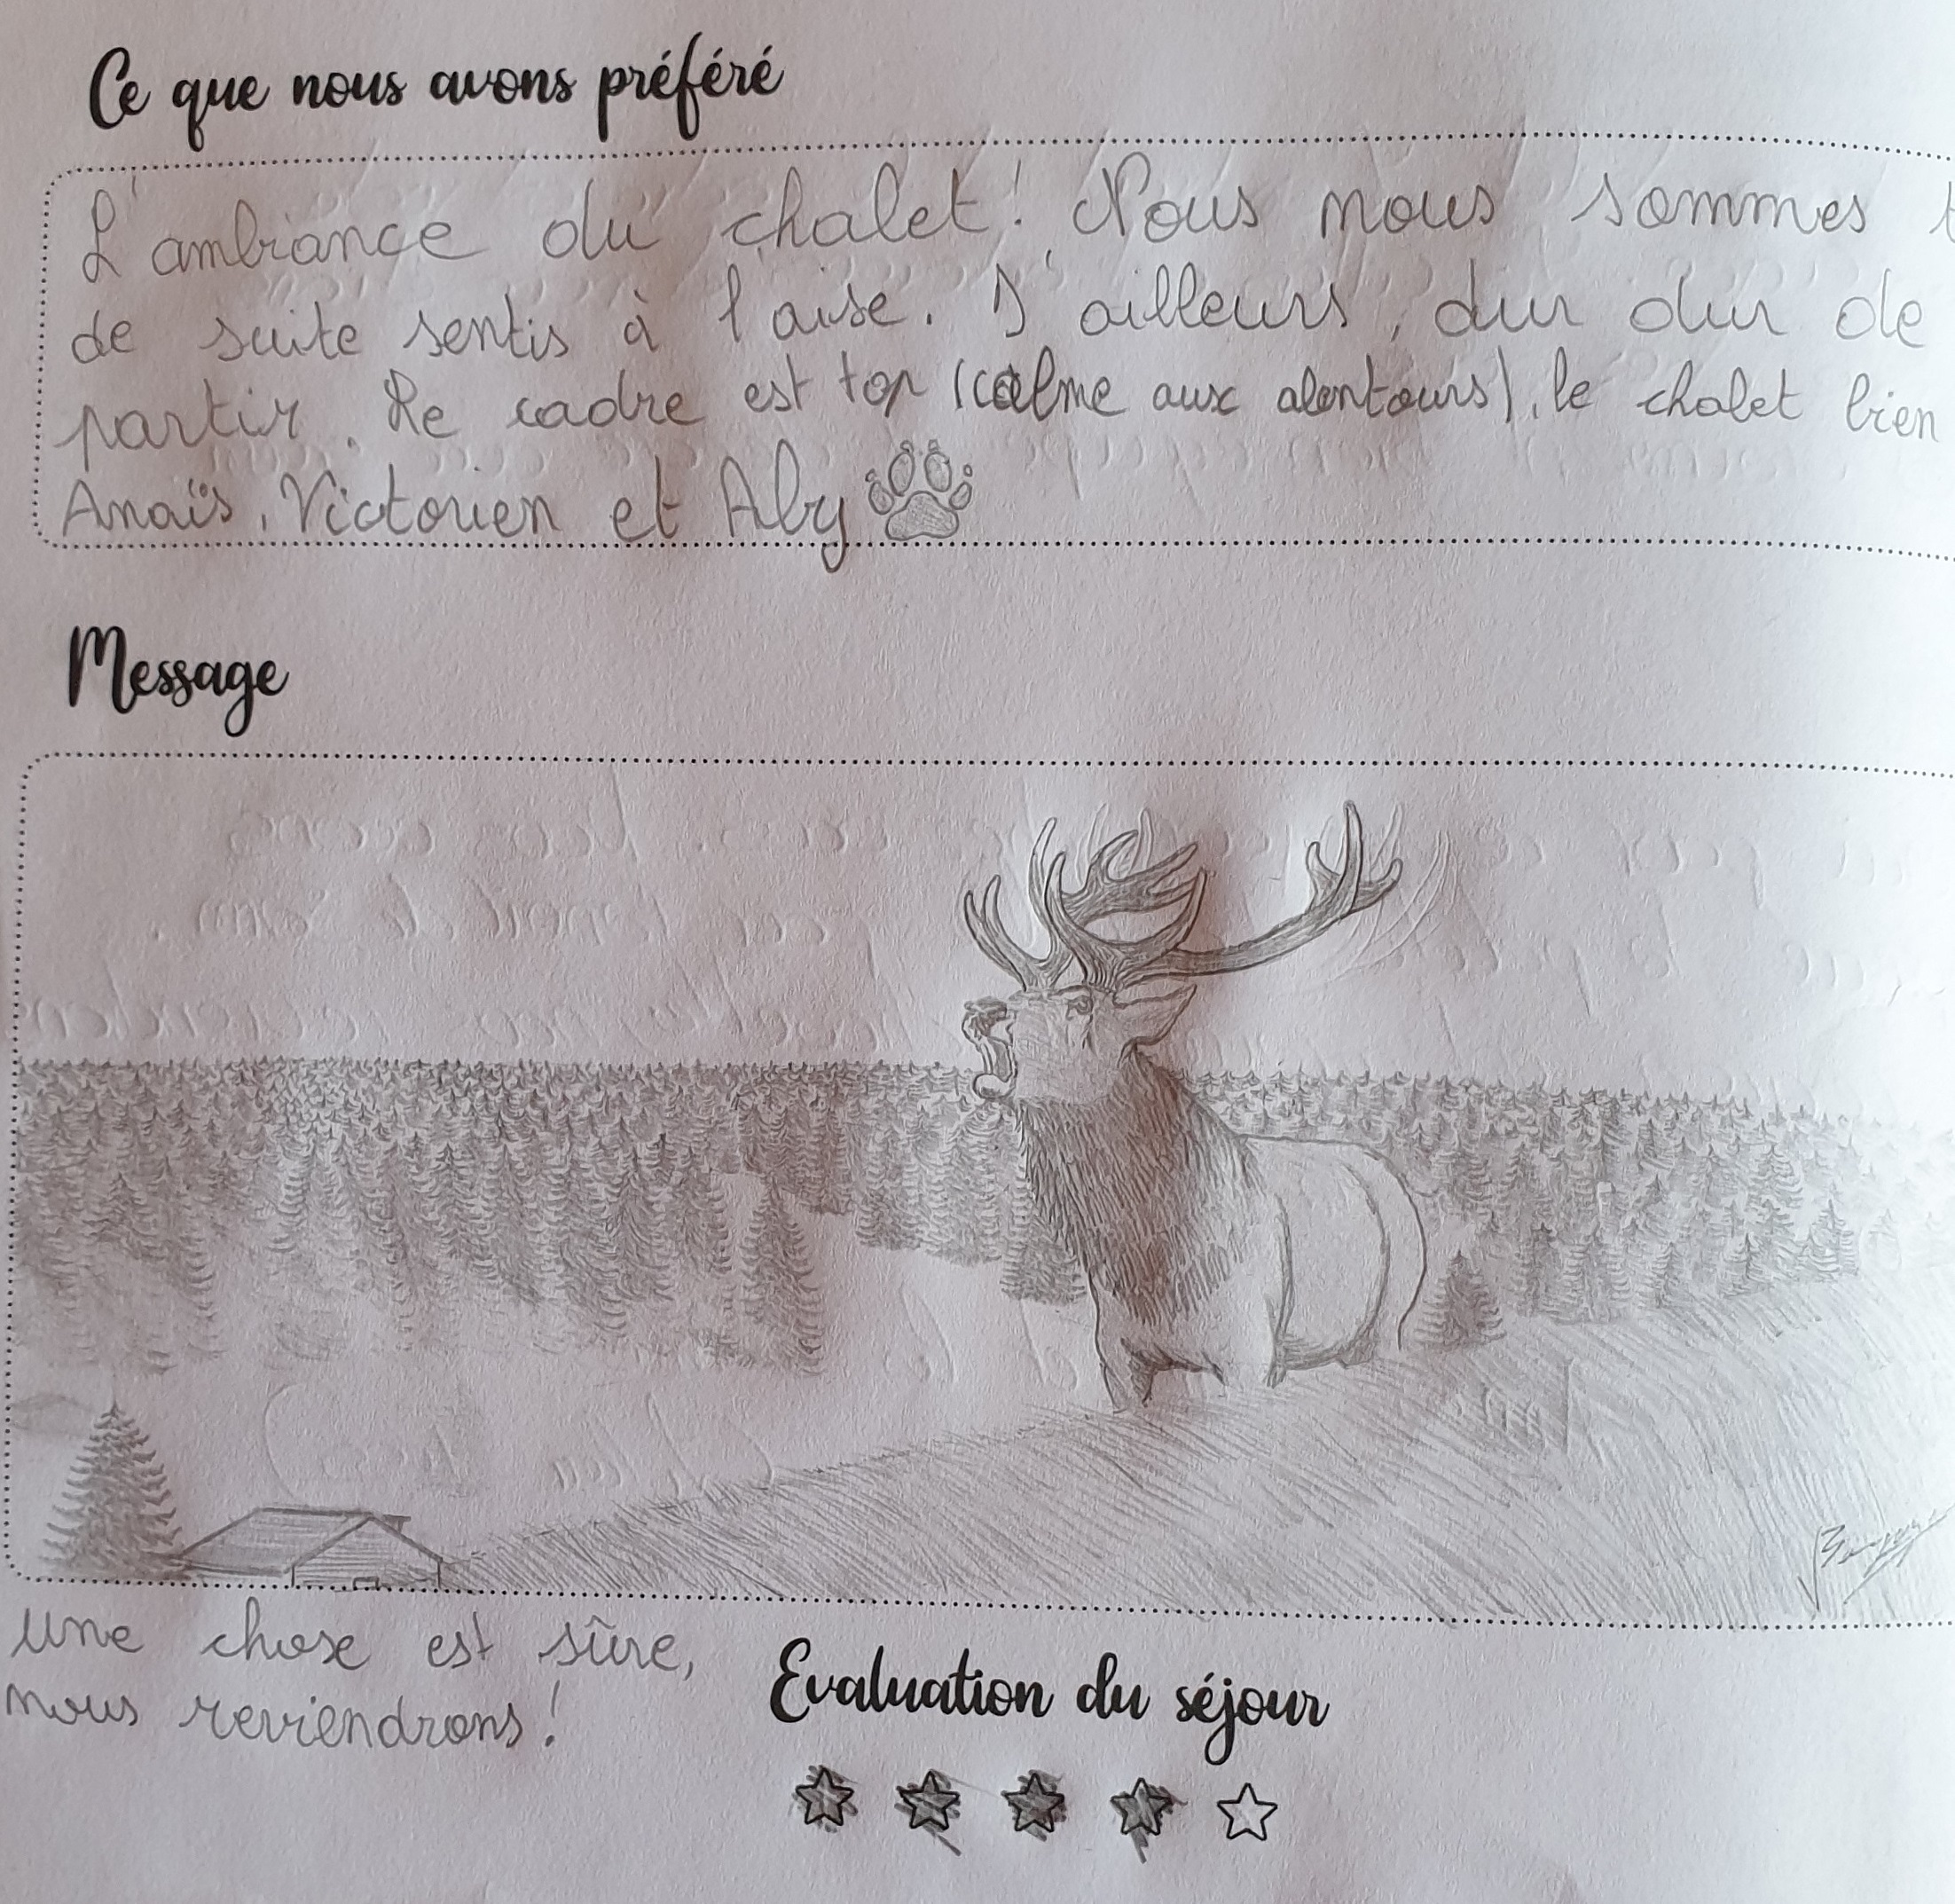 Ce que nous avons préféré
L'ambiance du chalet ! Nous nous sommes
de suite sentis à l'aise. D'ailleurs, dur dur de
partir. Le cadre est top (calme aux alentours), le chalet bien
Anaïs, Victorien et Aby
Message
Une chose est sûre,
nous reviendrons !
Evaluation du séjour